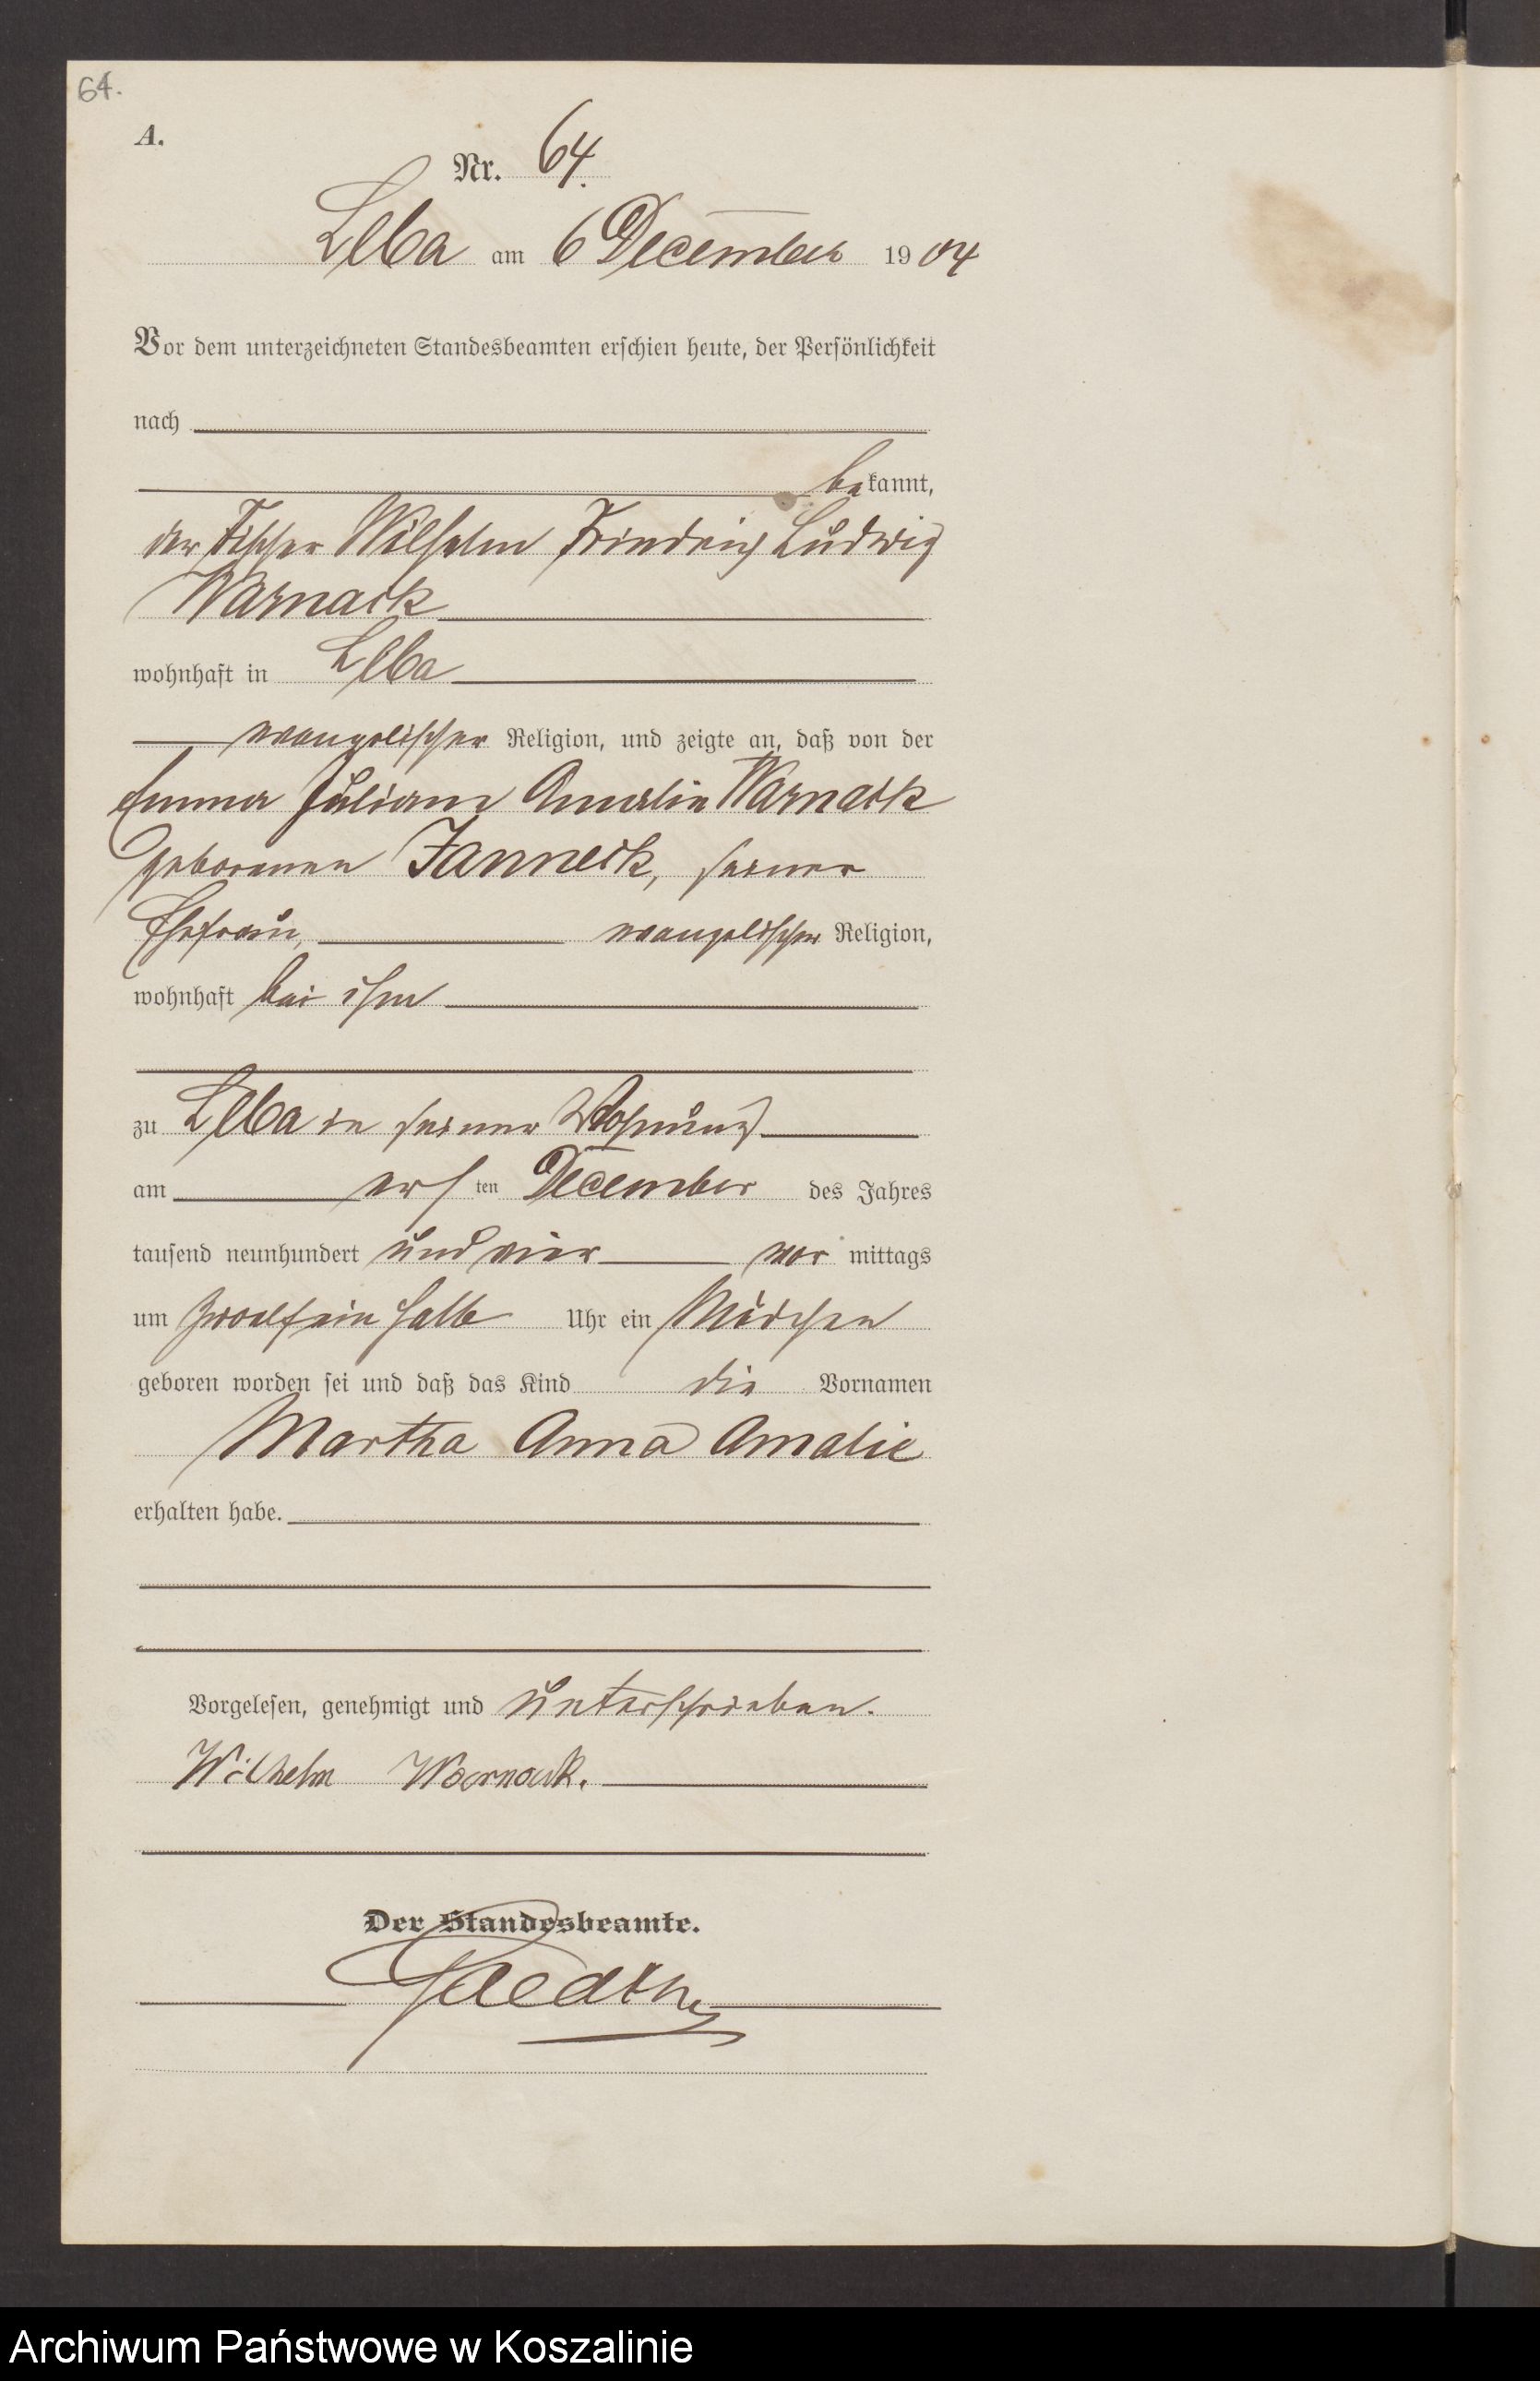 64.
A.
Nr. 64.
Leba am 6 December 1904
Vor dem unterzeichneten Standesbeamten erschien heute, der Persönlichkeit
nach
bekannt,
der Fischer Wilhelm Friedrich Ludwig
Warnack
wohnhaft in Leba
evangelischer Religion, und zeigte an, daß von der
Emma Juliane Amalie Warnack
geborenen Janneck, seiner
Ehefrau, evangelischer Religion,
wohnhaft bei ihm
zu Leba in seiner Wohnung
am ersten December des Jahres
tausend neunhundert und vier vor mittags
um zwoelfeinhalb Uhr ein Mädchen
geboren worden sei und daß das Kind die Vornamen
Martha Anna Amalie
erhalten habe.
Vorgelesen, genehmigt und unterschrieben.
Wilhelm Warnack.
Der Standesbeamte.
Archiwum Państwowe w Koszalinie